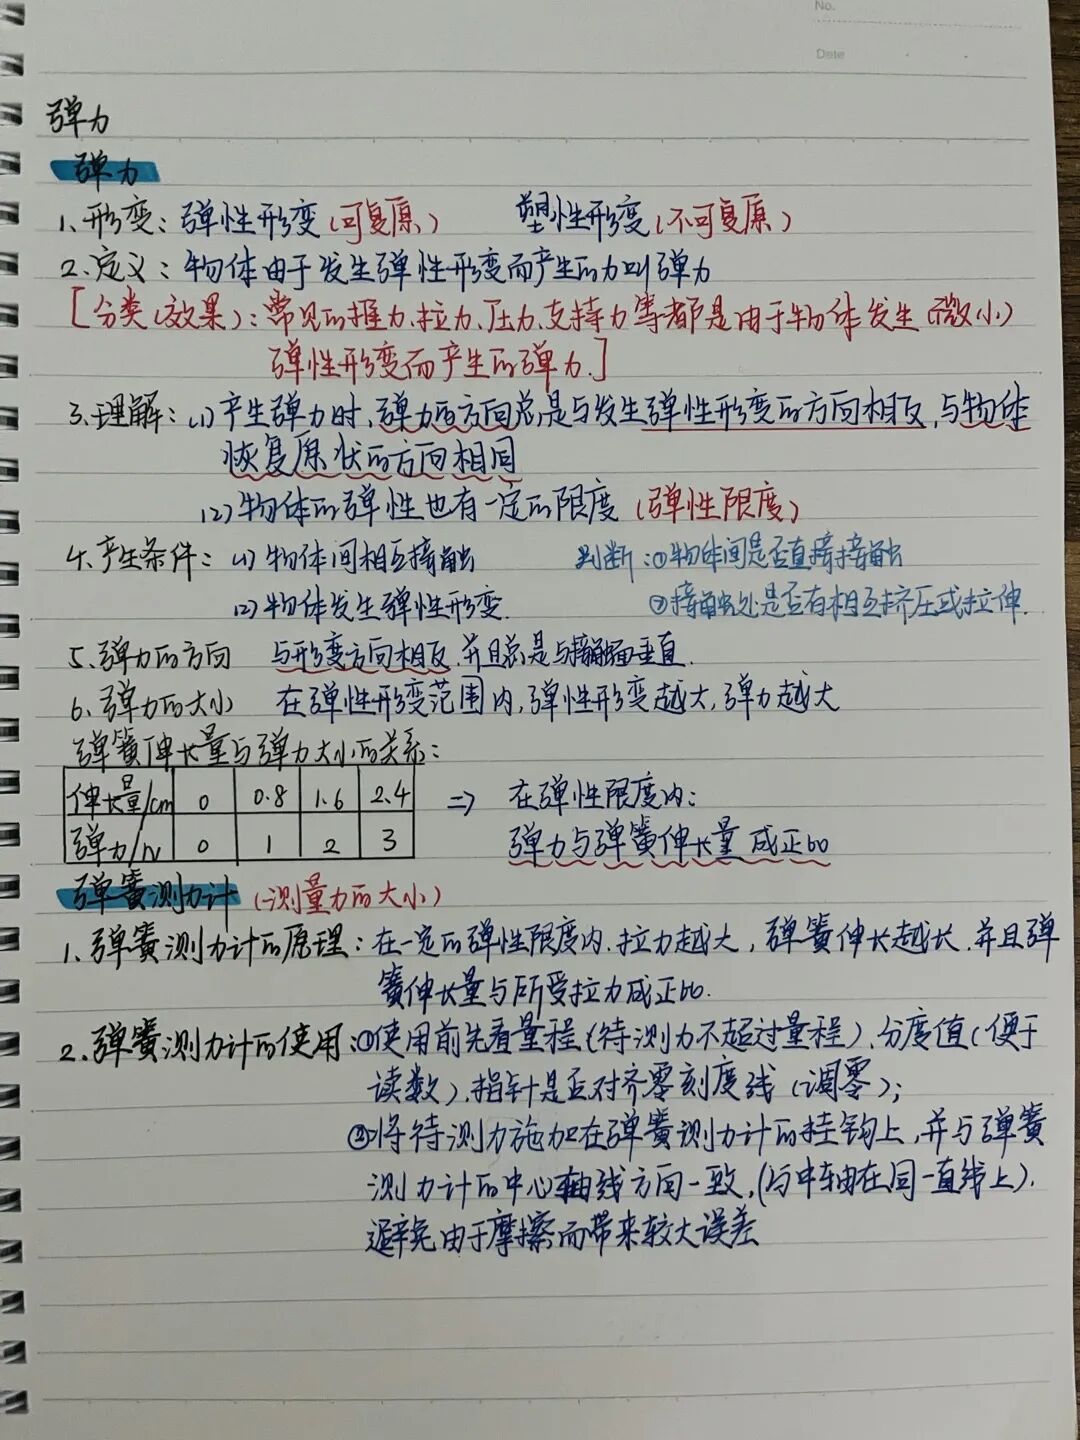 No.
Date
弹力
弹力
1、形变：弹性形变（可复原） 塑性形变（不可复原）
2、定义：物体由于发生弹性形变而产生的力叫弹力
[分类（效果）：常见的推力、拉力、压力、支持力等都是由于物体发生（微小）
弹性形变而产生的弹力.]
3、理解：(1)产生弹力时，弹力的方向总是与发生弹性形变的方向相反，与物体
恢复原状的方向相同
(2)物体的弹性也有一定的限度（弹性限度）
4、产生条件：(1)物体间相互接触 判断：①物体间是否直接接触
(2)物体发生弹性形变. ②接触处是否有相互挤压或拉伸.
5、弹力的方向 与形变方向相反，并且总是与接触面垂直.
6、弹力的大小 在弹性形变范围内，弹性形变越大，弹力越大
弹簧伸长量与弹力大小的关系：
伸长量/cm 0 0.8 1.6 2.4 => 在弹性限度内：
弹力/N 0 1 2 3 弹力与弹簧伸长量成正比
弹簧测力计（测量力的大小）
1、弹簧测力计的原理：在一定的弹性限度内，拉力越大，弹簧伸长越长，并且弹
簧伸长量与所受拉力成正比.
2、弹簧测力计的使用：①使用前先看量程（待测力不超过量程）、分度值（便于
读数）、指针是否对齐零刻度线（调零）；
②将待测力施加在弹簧测力计的挂钩上，并与弹簧
测力计的中心轴线方向一致，（与中轴在同一直线上），
避免由于摩擦而带来较大误差